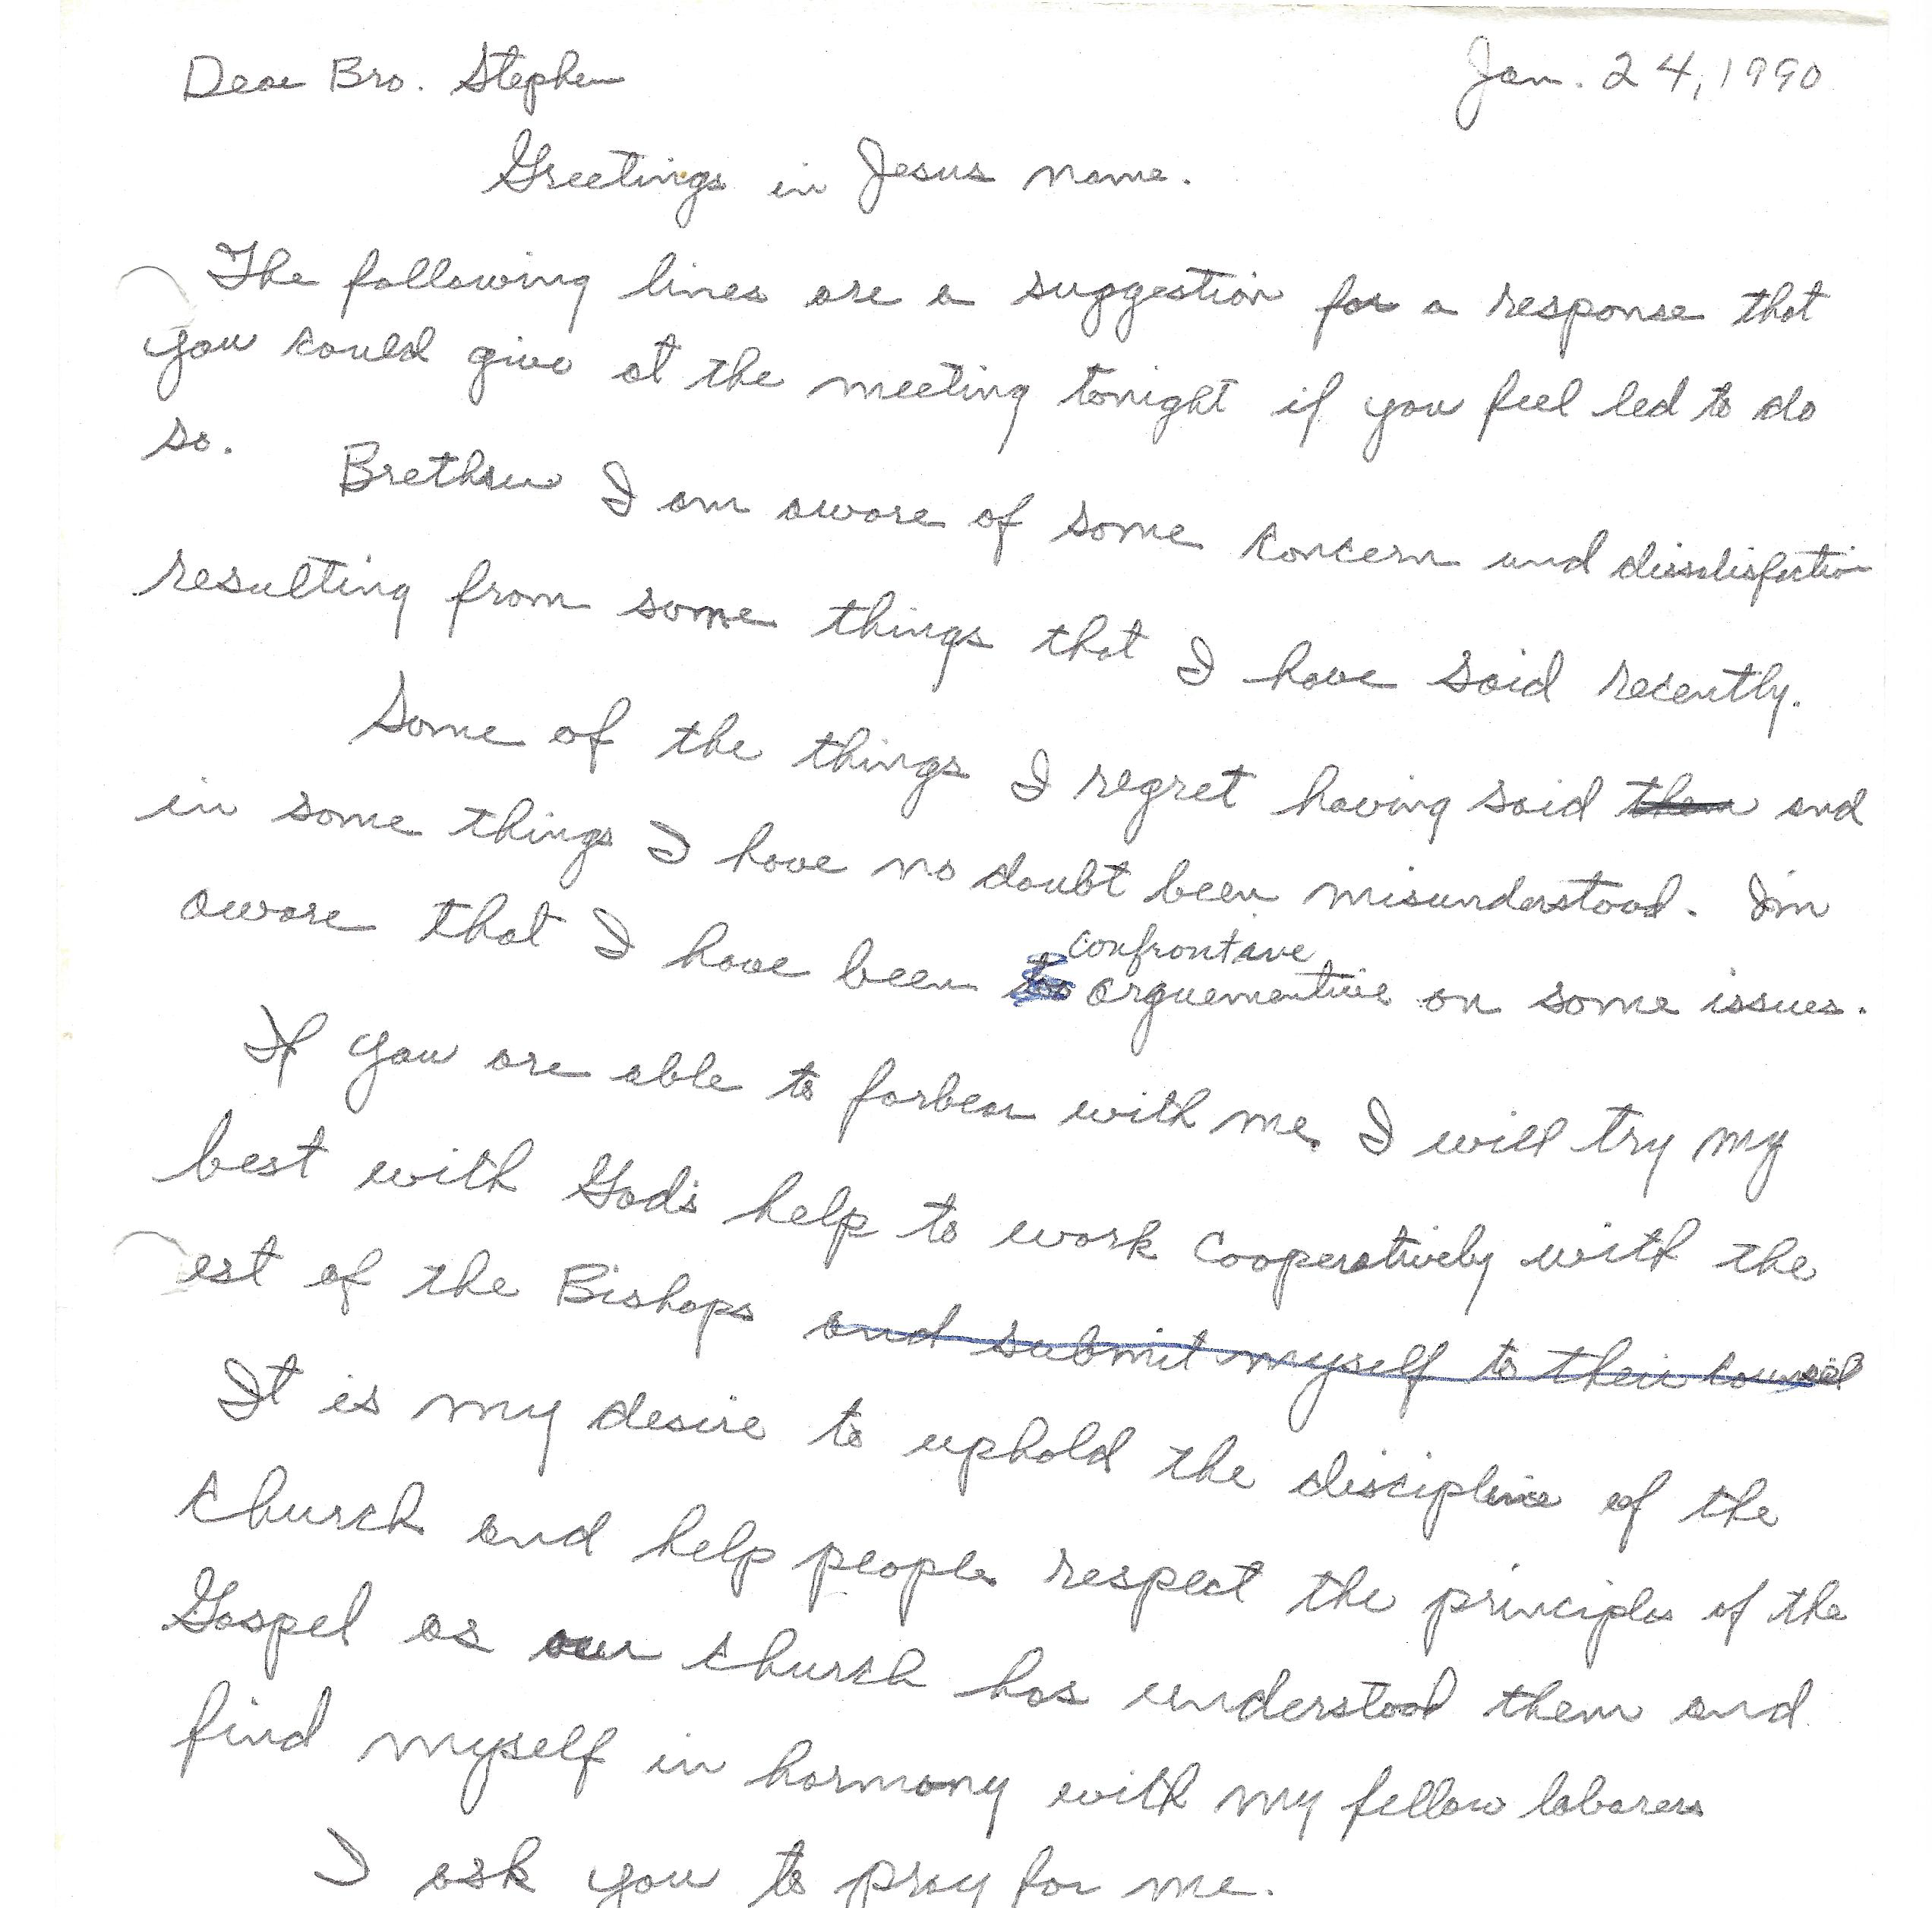 Dear Bro. Stephen Jan. 24, 1990
Greetings in Jesus name.
The following lines are a suggestion for a response that
you could give at the meeting tonight if you feel led to do
so.
Brethren I am aware of some concern and dissatisfaction
resulting from some things that I have said recently.
Some of the things I regret having said them and
in some things I have no doubt been misunderstood. I'm
confrontave
aware that I have been too arguementive on some issues.
If you are able to forbear with me I will try my
best with God's help to work cooperatively with the
est of the Bishops and submit myself to their counsel
It is my desire to uphold the discipline of the
church and help people respect the principles of the
Gospel as our church has understood them and
find myself in harmony with my fellow laborers
I ask you to pray for me.